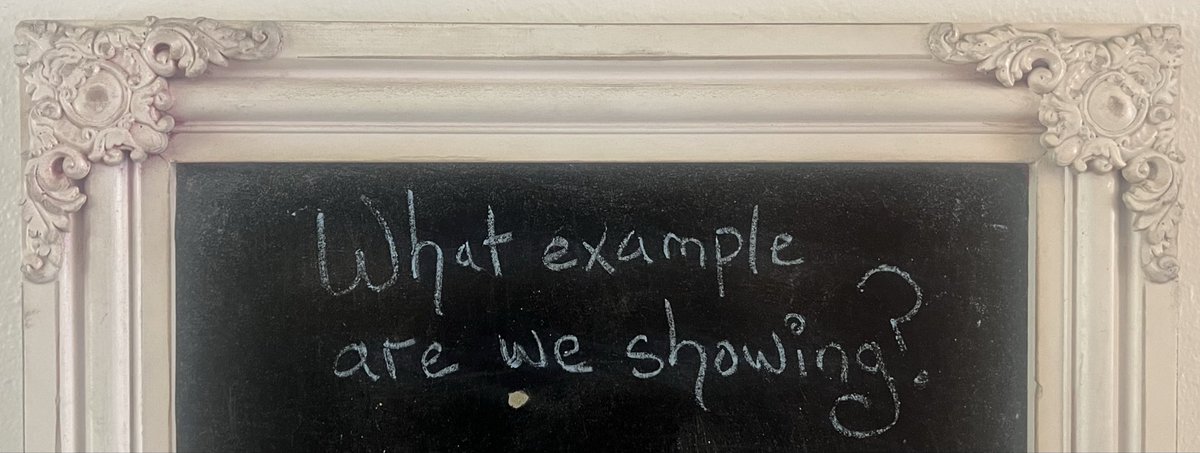 What example
are we showing?